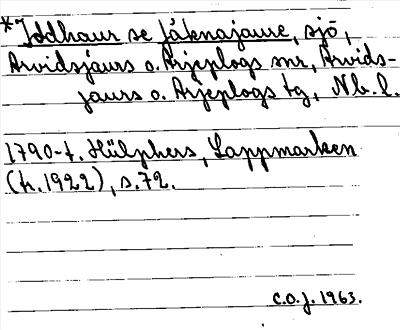 *Joddhaur se Jåknajaure, sjö,
Arvidsjaurs o. Arjeplogs snr, Arvids-
jaurs o. Arjeplogs tg, Nb. l.
1790-t. Hülphers, Lappmarken
(tr. 1922), s. 72.
C.O.J. 1963.